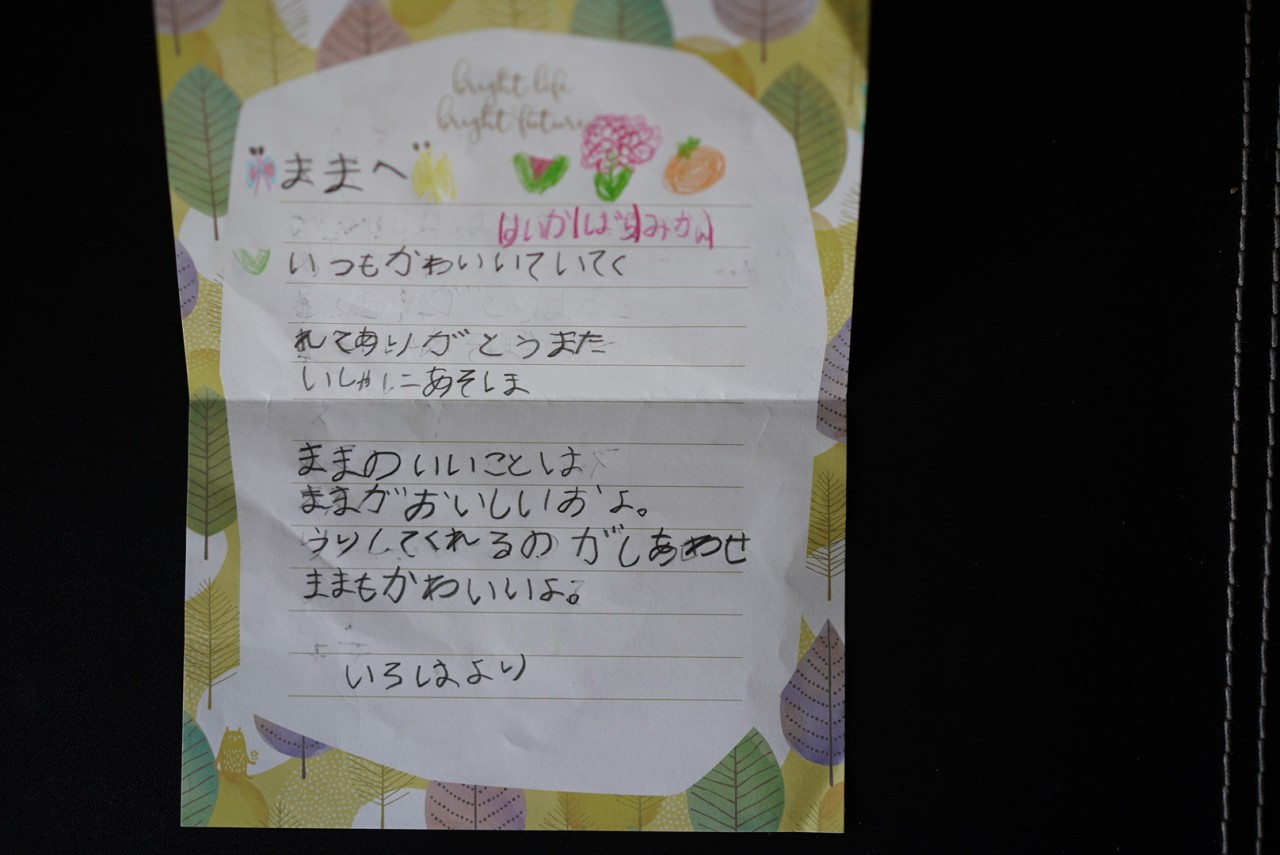 bright life
bright future
ままへ
はいか ばら みかん
いつもかわいいていてく
れてありがとうまた
いしゃにあそしま
ままのいいことは
ままがおいしいおよ。
うりしてくれるのがしあわせ
ままもかわいいよ。
いろはより